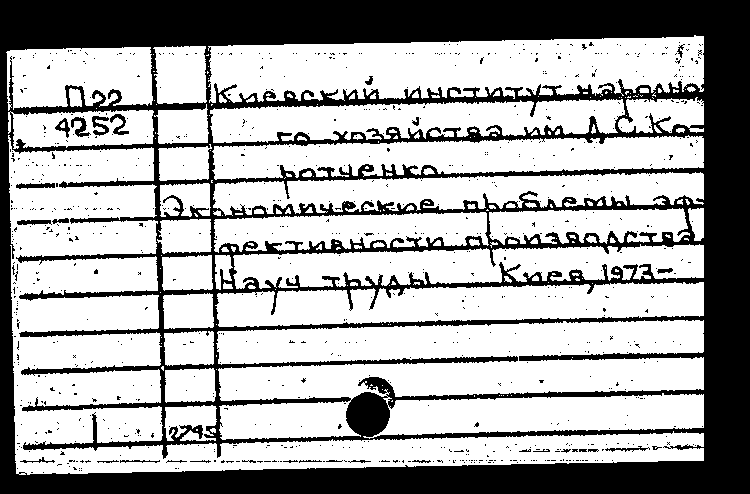 П22 Киевский институт народно-
4252 го хозяйства им Д.С.Ко-
ротченко.
Экономические проблемы эф-
фективности производства.
Науч труды Киев, 1973-
2795